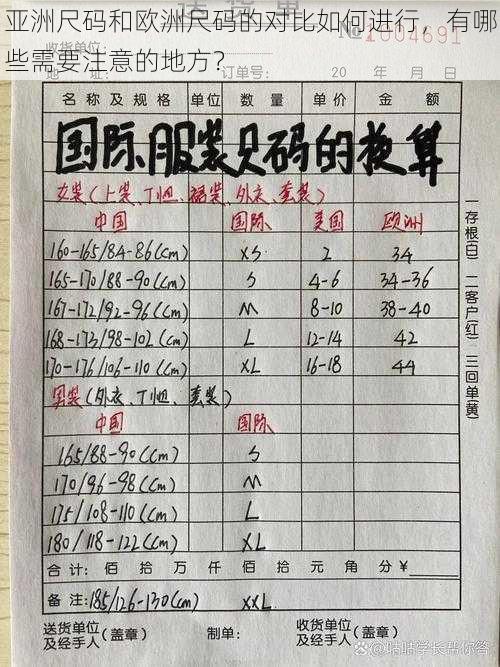 亚洲尺码和欧洲尺码的对比如何进行，有哪些需要注意的地方？
№2004691
收货单位： 订单号： 20 年 月 日
名称及规格 单位 数量 单价 金额
国际服装尺码的换算
女装(上装、T恤、裙装、外衣、套装)
中国 国际 美国 欧洲
160-165/84-86(cm) XS 2 34
165-170/88-90(cm) S 4-6 34-36
167-172/92-96(cm) M 8-10 38-40
168-173/98-102(cm) L 12-14 42
170-176/106-110(cm) XL 16-18 44
男装(外衣、T恤、套装)
中国 国际
165/88-90(cm) S
170/96-98(cm) M
175/108-110(cm) L
180/118-122(cm) XL
合计： 佰 拾 万 仟 佰 拾 元 角 分¥
备注：185/126-130(cm) XXL
送货单位及经手人(盖章) 制单： 收货单位及经手人(盖章)
一存根(白) 二客户(红) 三回单(黄)